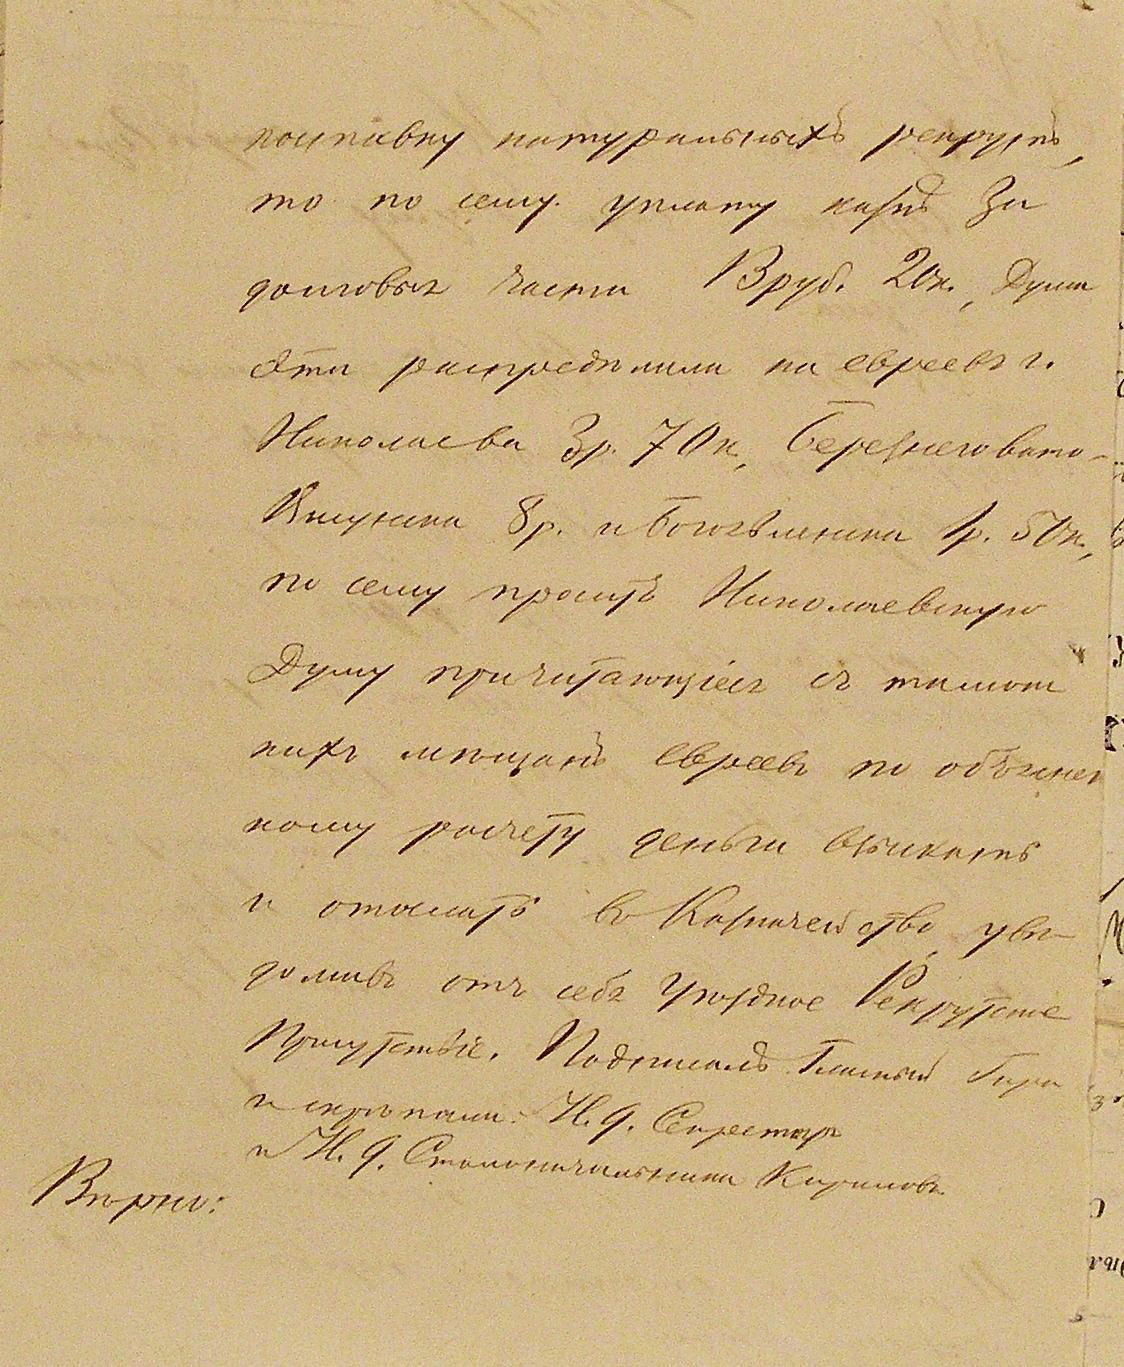 поставку натуральныхъ рекрутъ,
то по сему уплату казнѣ за
долговыя части 13 руб. 20 к., Дума
эти распредѣлила на евреевъ г.
Николаева 3 р. 70 к., Березнеговато-
8 р. и Богоявленска 1 р. 50 к.,
по сему проситъ Николаевскую
Думу причитающіяся съ
нихъ мѣщанъ евреевъ по объяснен
ному расчету деньги взыскать
и отослать въ Казначейство, увѣ-
домивъ отъ себя Уѣздное Рекрутское
Присутствіе. Подписалъ Гласный
и скрѣпили: И. д. Секретаря
и И. д. Столоначальника
Вѣрно: